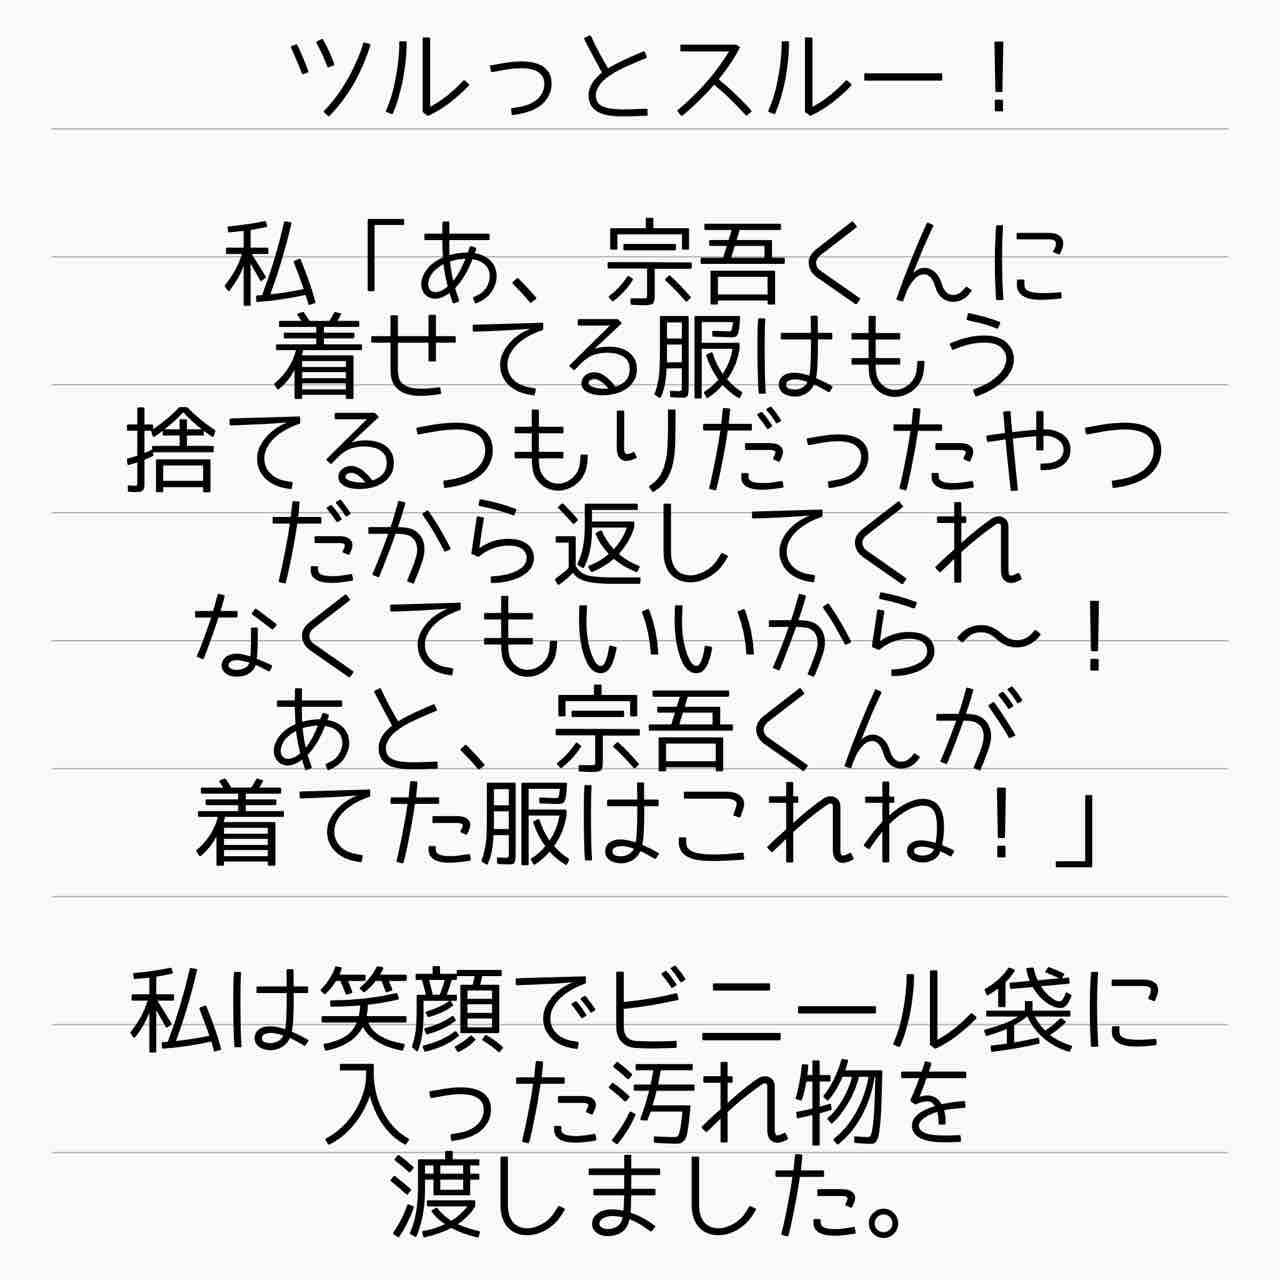 ツルっとスルー！
私「あ、宗吾くんに
着せてる服はもう
捨てるつもりだったやつ
だから返してくれ
なくてもいいから〜！
あと、宗吾くんが
着てた服はこれね！」
私は笑顔でビニール袋に
入った汚れ物を
渡しました。